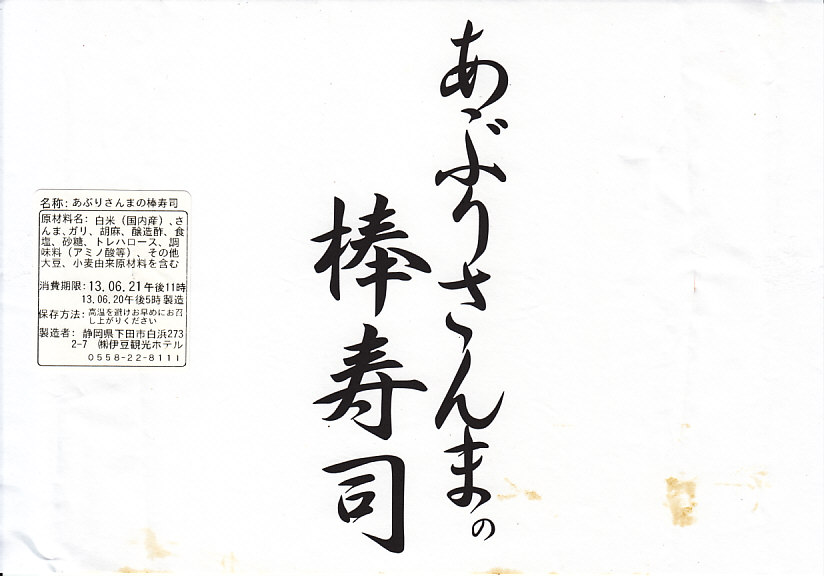 あぶりさんまの
棒寿司
名称: あぶりさんまの棒寿司
原材料名: 白米（国内産）、さ
んま、ガリ、胡麻、醸造酢、食
塩、砂糖、トレハロース、調
味料（アミノ酸等）、その他
大豆、小麦由来原材料を含む
消費期限: 13.06.21午後11時
13.06.20午後5時製造
保存方法: 高温を避けお早めにお召
し上がりください
製造者: 静岡県下田市白浜273
2-7 ㈱伊豆観光ホテル
0558-22-8111